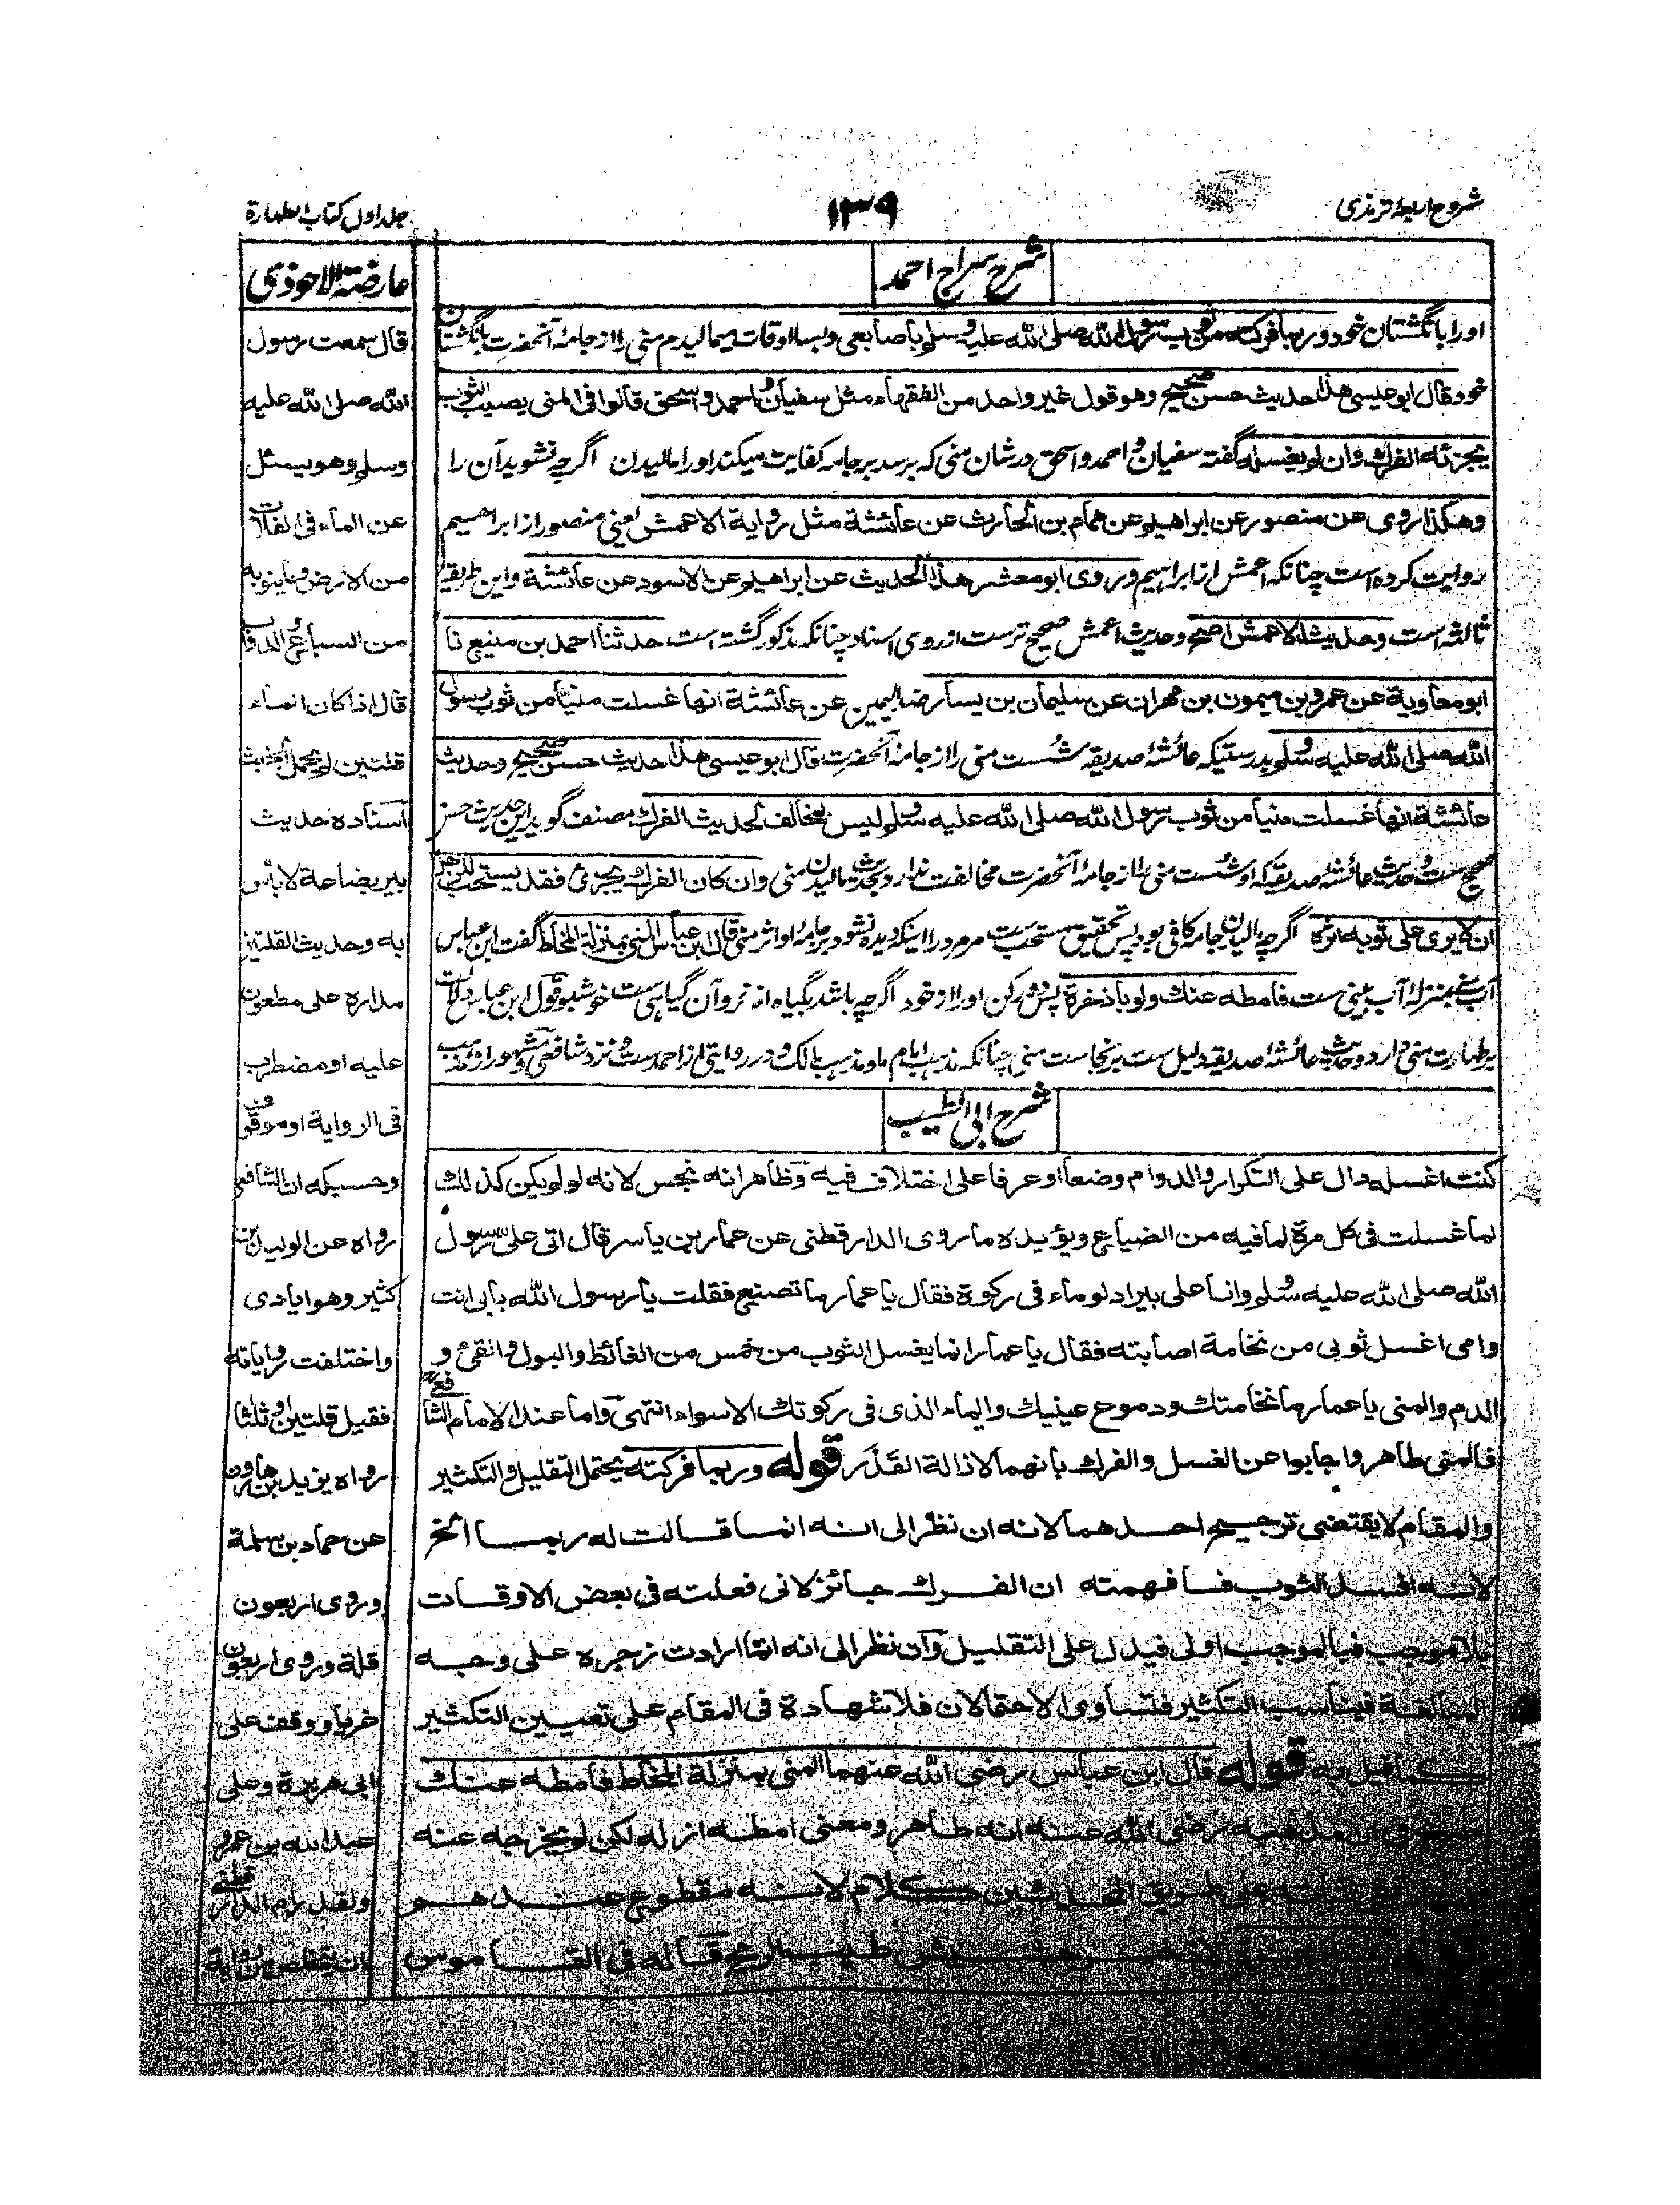 شروح اربعۂ ترمذی
۱۳۹
جلد اول کتاب الطهارة
شرح سراج احمد
اورا بانگشتان خود وربما فركته من ثوب رسول الله صلى الله عليه وسلم باصابعی وبسا اوقات میمالیدم منی را از جامۂ آنحضرت بانگشتان
خود قال ابو عیسی هذا حدیث حسن صحیح وهو قول غیر واحد من الفقهاء مثل سفیان واحمد واسحق قالوا فی المنی یصیب الثوب
یجزئه الفرك وان لم یغسله گفته سفیان و احمد و اسحق در شان منی که برسد بر جامه کفایت میکند او را مالیدن اگرچه نشوید آن را
وهكذا روی عن منصور عن ابراهیم عن همام بن الحارث عن عائشة مثل روایة الاعمش یعنی منصور از ابراهیم
روایت کرده است چنانکه اعمش از ابراهیم وروی ابو معشر هذا الحدیث عن ابراهیم عن الاسود عن عائشة واین طریقه
ثالثه است وحدیث الاعمش اصح وحدیث اعمش صحیح ترست از روی اسناد چنانکه مذکور گشته است حدثنا احمد بن منیع نا
ابو معاویة عن عمرو بن میمون بن مهران عن سلیمان بن یسار عن عائشة انها غسلت منیا من ثوب رسول
الله صلى الله علیه وسلم بدرستیکه عائشۂ صدیقه شست منی را از جامۂ آنحضرت قال ابو عیسی هذا حدیث حسن صحیح وحدیث
عائشة انها غسلت منیا من ثوب رسول الله صلى الله علیه وسلم لیس بمخالف لحدیث الفرك مصنف گوید این حدیث حسن
صحیح ست وحدیث عائشۂ صدیقه که او شست منی را از جامۂ آنحضرت مخالفت ندارد بحدیث مالیدن منی وان كان الفرك یجزئ فقد یستحب للرجل
ان لا یری علی ثوبه اثره اگرچه مالیدن جامه کافی بود پس تحقیق مستحب ست مرمرد را اینکه دیده نشود بر جامۂ او اثر منی قال ابن عباس المنی بمنزلة المخاط گفت ابن عباس
آب منی بمنزلۂ آب بینی ست فامطه عنك ولو باذخرة پس دور کن او را از خود اگرچه باشد بگیاه اذخر و آن گیاهی ست خوشبو وقول ابن عباس دلالت
بر طهارت منی دارد وحدیث عائشۂ صدیقه دلیل ست بر نجاست منی چنانکه مذهب امام ما ومذهب مالک ودر روایتی از احمد ست ونزد شافعی ومشهور از مذهب
شرح ابی الطیب
كنت اغسله دال علی التكرار والدوام وضعا او عرفا علی اختلاف فیه وظاهر انه نجس لانه لو لم یكن كذلك
لما غسلت فی كل مرة لما فیه من الضیاع ویؤیده ما روی الدار قطنی عن عمار بن یاسر قال اتی علی رسول
الله صلى الله علیه وسلم وانا علی بیر ادلو ماء فی ركوة فقال یا عمار ما تصنع فقلت یا رسول الله بابی انت
وامی اغسل ثوبی من نخامة اصابته فقال یا عمار انما یغسل الثوب من خمس من الغائط والبول والقئ و
الدم والمنی یا عمار ما نخامتك ودموع عینیك والماء الذی فی ركوتك الا سواء انتهی واما عند الامام الشافعی
فالمنی طاهر واجابوا عن الغسل والفرك بانهما لازالة القذر قوله وربما فركته یحتمل التقلیل والتكثیر
والمقام لا یقتضی ترجیح احدهما لانه ان نظر الی انه انما قالت له ربما الخ
لانه اغسل الثوب فما فهمته ان الفرك جائز لانی فعلته فی بعض الاوقات
بلا موجب فبالموجب اولی فیدل علی التقلیل وان نظر الی انه انما ارادت زجره علی وجه
المبالغة فیناسب التكثیر فتساوی الاحتمالان فلا شهادة فی المقام علی تعیین التكثیر
كما قیل به قوله قال ابن عباس رضی الله عنهما المنی بمنزلة المخاط فامطه عنك
مذهبه رضی الله عنه انه طاهر ومعنی امطه ازله لكن لم یخرجه عنه
علی طریق المحدثین كلام لانه مقطوع عندهم
حشیش طیب الریح قاله فی القاموس
عارضة الاحوذی
قال سمعت رسول
الله صلى الله علیه
وسلم وهو یسئل
عن الماء فی الفلات
من الارض وما ینوبه
من السباع والدواب
قال اذا كان الماء
قلتین لم یحمل الخبث
اسناده حدیث
بیر بضاعة لا بأس
به وحدیث القلتین
مداره علی مطعون
علیه او مضطرب
فی الروایة او موقوف
وحسبكه ان الشافعی
رواه عن الولید بن
كثیر وهو ابادی
واختلفت روایاته
فقیل قلتین او ثلثا
رواه یزید بن هارون
عن حماد بن سلمة
وروی اربعون
قلة وروی اربعون
غربا ووقف علی
ابی هریرة وعلی
عبد الله بن عمرو
ولقد رام الدار قطنی
ان یتخلص من روایة